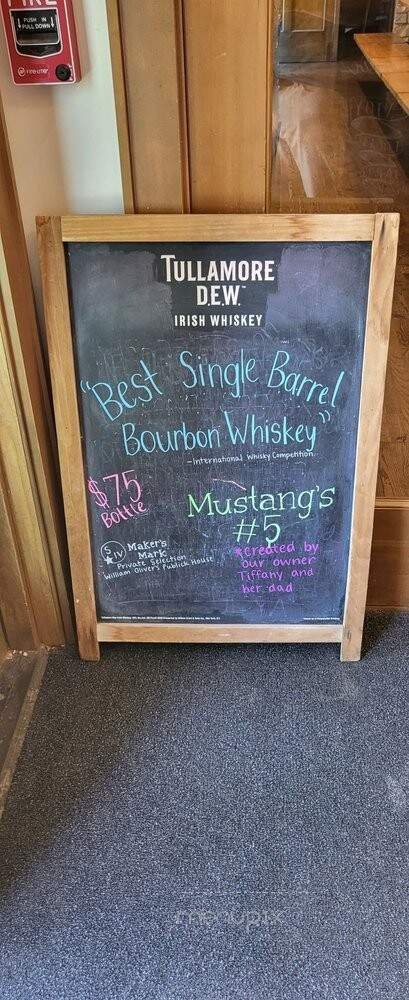 FIRE
PUSH IN
PULL DOWN
FIRE-LITE
TULLAMORE
D.E.W.™
IRISH WHISKEY
"Best Single Barrel
Bourbon Whiskey"
-International Whisky Competition
$75
Bottle
Mustang's
#5
S IV
Maker's
Mark
Private Selection
William Oliver's Publick House
*Created by
our owner
Tiffany and
her dad
menupix